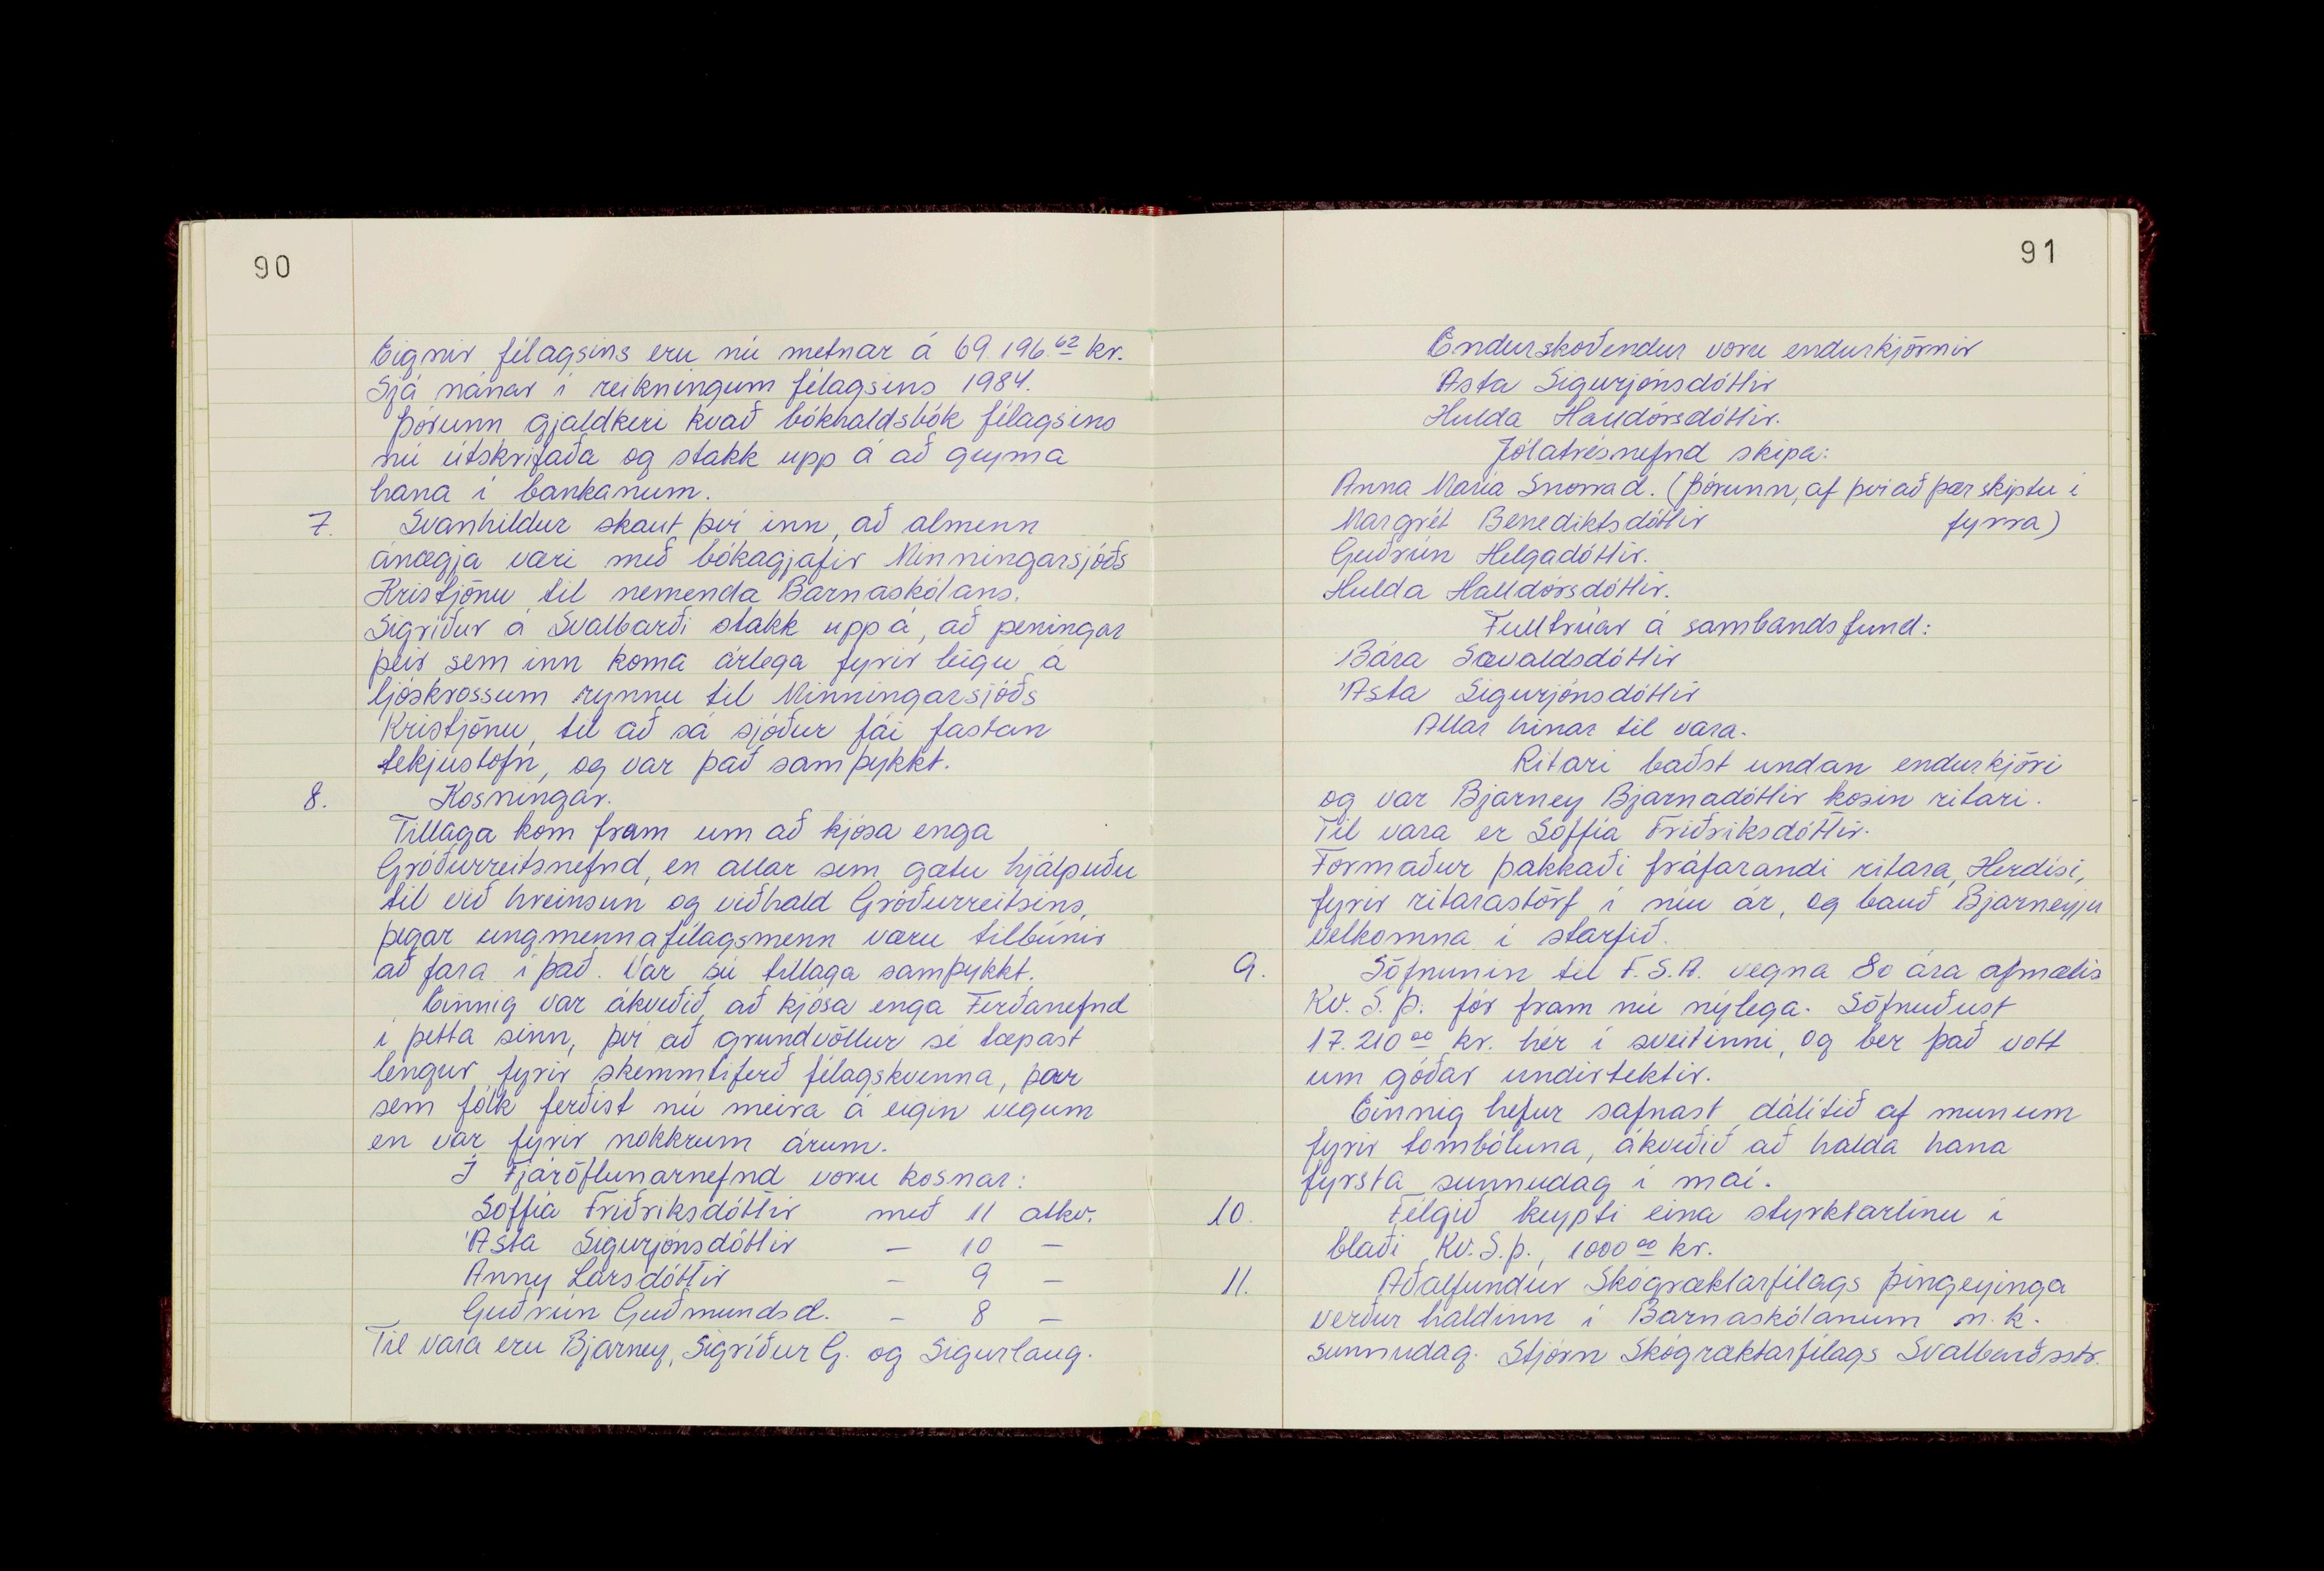 90
Eignir félagsins eru nú metnar á 69.196.62 kr.
Sjá nánar í reikningum félagsins 1984.
Þórunn gjaldkeri kvað bókhaldsbók félagsins
nú útskrifaða og stakk upp á að geyma
hana í bankanum.
7. Svanhildur skaut því inn, að almenn
ánægja væri með bókagjafir Minningarsjóðs
Kristjönu til nemenda Barnaskólans.
Sigríður á Svalbarði stakk uppá, að peningar
þeir sem inn koma árlega fyrir leigu á
ljóskrossum rynnu til Minningarsjóðs
Kristjönu, til að sá sjóður fái fastan
tekjustofn, og var það samþykkt.
8. Kosningar.
Tillaga kom fram um að kjósa enga
Gróðurreitsnefnd, en allar sem gætu hjálpuðu
til við hreinsun og viðhald Gróðurreitsins,
þegar ungmennafélagsmenn væru tilbúnir
að fara í það. Var sú tillaga samþykkt.
Einnig var ákveðið, að kjósa enga Ferðanefnd
í þetta sinn, því að grundvöllur sé tæpast
lengur fyrir skemmtiferð félagskvenna, þar
sem fólk ferðist nú meira á eigin vegum
en var fyrir nokkrum árum.
Í Fjáröflunarnefnd voru kosnar:
Soffía Friðriksdóttir með 11 atkv.
Ásta Sigurjónsdóttir — 10 —
Anny Larsdóttir — 9 —
Guðrún Guðmundsd. — 8 —
Til vara eru Bjarney, Sigríður G. og Sigurlaug.
91
Endurskoðendur voru endurkjörnir
Asta Sigurjónsdóttir
Hulda Halldórsdóttir.
Jólatrésnefnd skipa:
Anna María Snorrad. (Þórunn, af því að þær skiptu í
Margrét Benediktsdóttir fyrra)
Guðrún Helgadóttir.
Hulda Halldórsdóttir.
Fulltrúar á sambandsfund:
Bára Sævaldsdóttir
Ásta Sigurjónsdóttir
Allar hinar til vara.
Ritari baðst undan endurkjöri
og var Bjarney Bjarnadóttir kosin ritari.
Til vara er Soffía Friðriksdóttir.
Formaður þakkaði fráfarandi ritara, Herdísi,
fyrir ritarastörf í níu ár, og bauð Bjarneyju
velkomna í starfið.
9. Söfnunin til F.S.A. vegna 80 ára afmælis
Kv. S. Þ. fór fram nú nýlega. Söfnuðust
17.210 00 kr. hér í sveitinni, og ber það vott
um góðar undirtektir.
Einnig hefur safnast dálítið af munum
fyrir tombóluna, ákveðið að halda hana
fyrsta sunnudag í maí.
10. Félgið keypti eina styrktarlínu í
blaði Kv. S.þ., 1000 00 kr.
11. Aðalfundur Skógræktarfélags Þingeyinga
verður haldinn í Barnaskólanum n.k.
sunnudag. Stjórn Skógræktarfélags Svalbarðsstr.